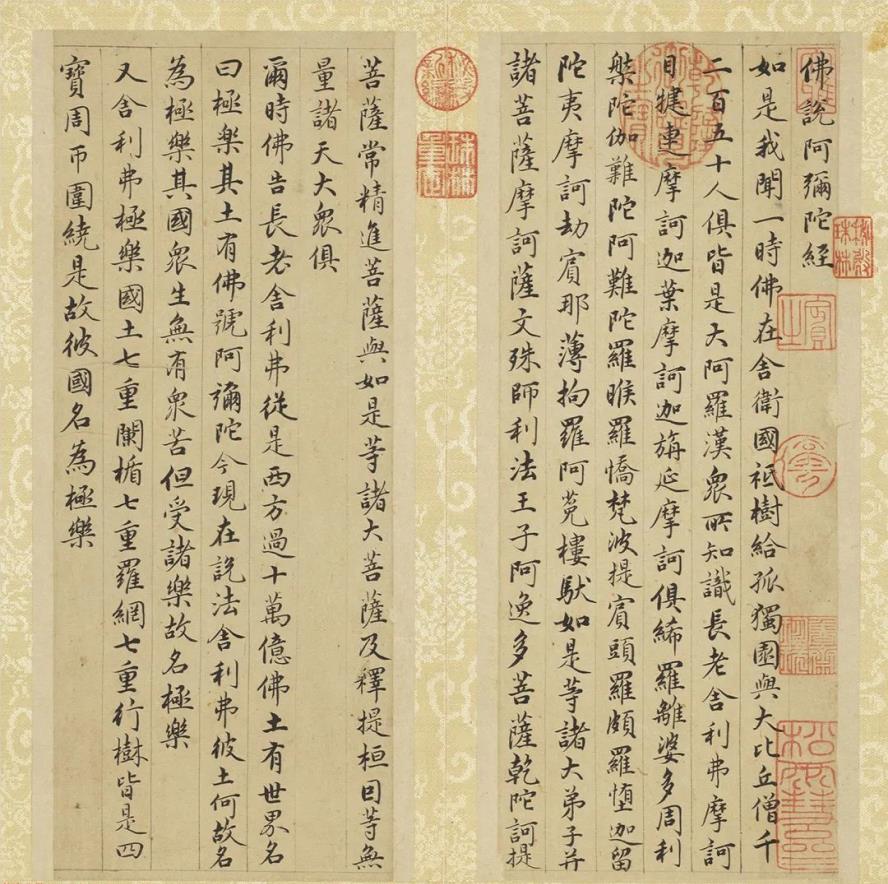 佛說阿彌陀經
如是我聞一時佛在舍衛國祇樹給孤獨園與大比丘僧千
二百五十人俱皆是大阿羅漢眾所知識長老舍利弗摩訶
目犍連摩訶迦葉摩訶迦旃延摩訶俱絺羅離婆多周利
槃陀伽難陀阿難陀羅睺羅憍梵波提賓頭羅頗羅墮迦留
陀夷摩訶劫賓那薄拘羅阿㝹樓馱如是等諸大弟子并
諸菩薩摩訶薩文殊師利法王子阿逸多菩薩乾陀訶提
菩薩常精進菩薩與如是等諸大菩薩及釋提桓因等無
量諸天大眾俱
爾時佛告長老舍利弗從是西方過十萬億佛土有世界名
曰極樂其土有佛號阿彌陀今現在說法舍利弗彼土何故名
為極樂其國眾生無有眾苦但受諸樂故名極樂
又舍利弗極樂國土七重闌楯七重羅網七重行樹皆是四
寶周帀圍繞是故彼國名為極樂
秘殿珠林
乾隆御覽之寶